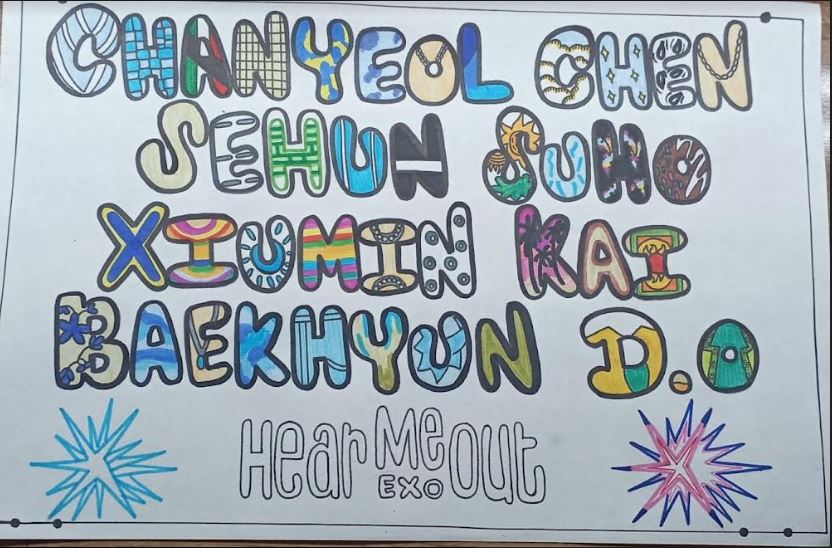 CHANYEOL CHEN
SEHUN SUHO
XIUMIN KAI
BAEKHYUN D.O
Hear Me Out
EXO